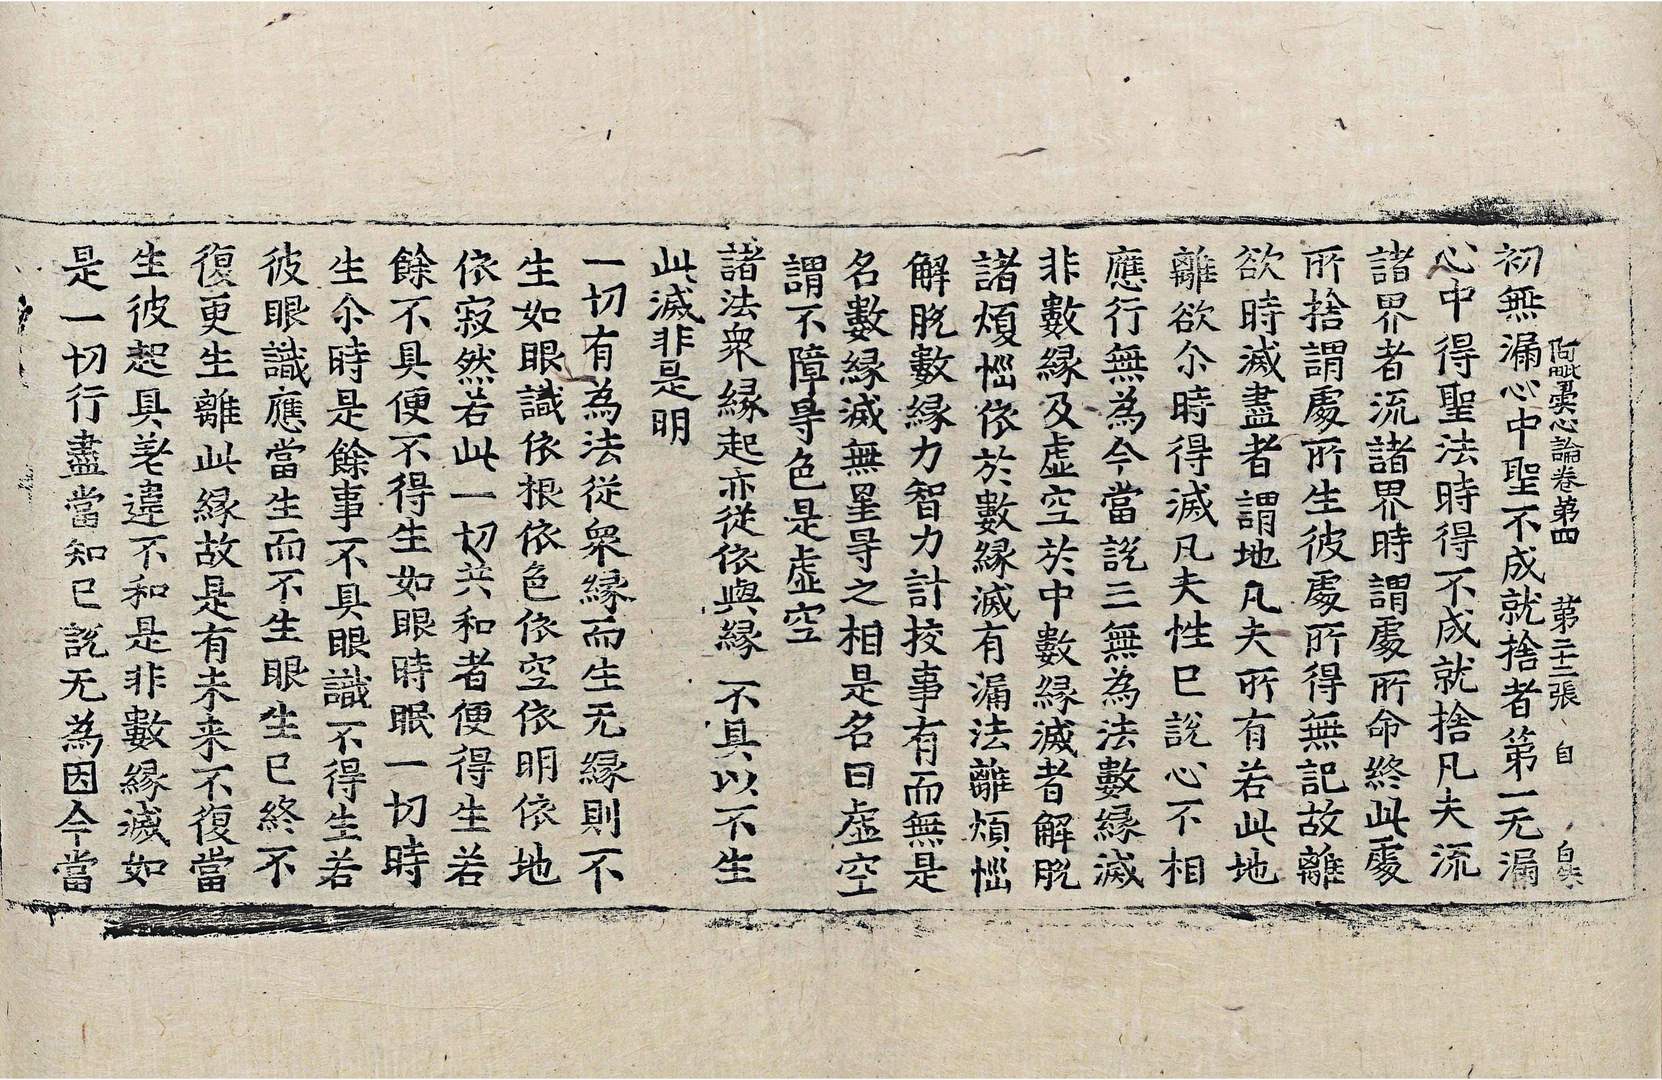 阿毗曇心論卷第四　第二十二張　自
初無漏心中聖不成就捨者第一无漏
心中得聖法時得不成就捨凡夫流
諸界者流諸界時謂處所命終此處
所捨謂處所生彼處所得無記故離
欲時滅盡者謂地凡夫所有若此地
離欲尒時得滅凡夫性已說心不相
應行無為今當說三無為法數緣滅
非數緣及虛空於中數緣滅者解脫
諸煩惱依於數緣滅有漏法離煩惱
解脫數緣力智力計挍事有而無是
名數緣滅無罣㝵之相是名曰虛空
謂不障㝵色是虛空
諸法衆緣起亦從依與緣　不具以不生
此滅非是明
一切有為法從衆緣而生无緣則不
生如眼識依根依色依空依明依地
依寂然若此一切共和者便得生若
餘不具便不得生如眼時眠一切時
生尒時是餘事不具眼識不得生若
彼眼識應當生而不生眼生已終不
復更生離此緣故是有未来不復當
生彼起具差違不和是非數緣滅如
是一切行盡當知已說无為因今當